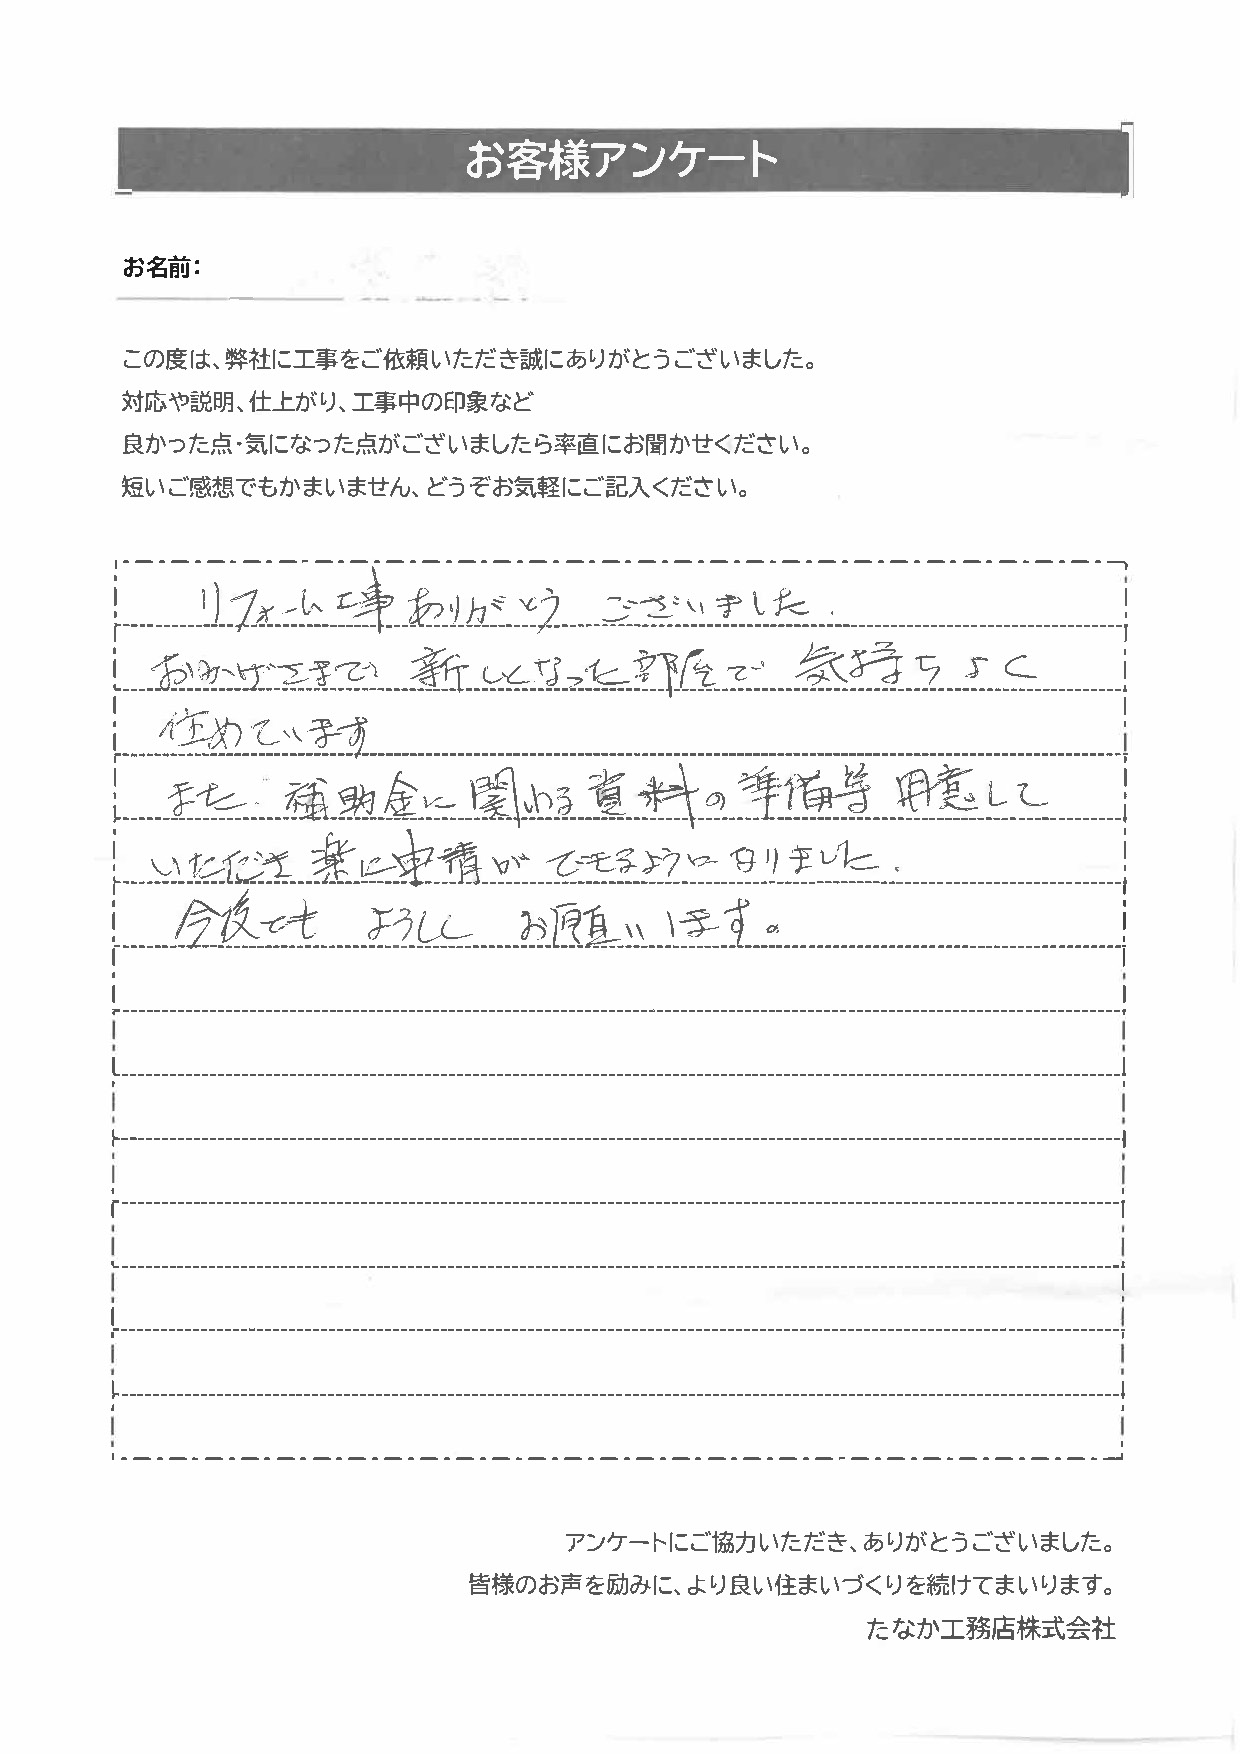 お客様アンケート
お名前:
この度は、弊社に工事をご依頼いただき誠にありがとうございました。
対応や説明、仕上がり、工事中の印象など
良かった点・気になった点がございましたら率直にお聞かせください。
短いご感想でもかまいません、どうぞお気軽にご記入ください。
リフォーム工事ありがとう ございました.
おかげさまで 新しくなった部屋で 気持ちよく
住めています
また 補助金に関わる資料の準備等 用意して
いただき 楽に申請が できるようになりました.
今後とも よろしく お願いします。
アンケートにご協力いただき、ありがとうございました。
皆様のお声を励みに、より良い住まいづくりを続けてまいります。
たなか工務店株式会社